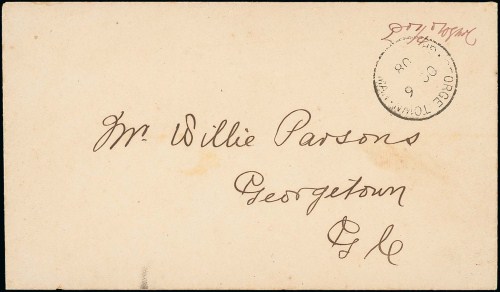 GEORGE TOWN
OC 6
08
Mr. Willie Parsons
Georgetown
G C